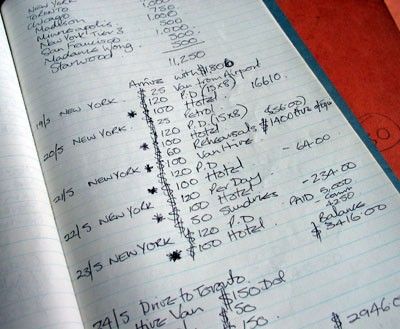 NEW YORK 1,000
TORONTO 750
Chicago 1,000
Madison
Minneapolis 500
New York Tier 3 1,000
San Francisco 500
Madame Wong 500
Starwood
11,250
Arrive with $1800
19/5 NEW YORK $25 Van from Airport
$120 P.D (15x8) 1661.0
* $100 Hotel
20/5 NEW YORK. $25 Petrol
$120 P.D (15x8) ($56.00)
* $100 Hotel
$60 Rehearsals $1400
$100 Van Hire
21/5 NEW YORK $120 P.D. -64.00
* $100 Hotel
22/5 NEW YORK $120 Per Day
* $100 Hotel -234.00
$50 Sundries
23/5 NEW YORK $120 P.D PAID 5,000
* $100 Hotel 4250
Balance
$3416.00
24/5 Drive to Toronto
Hire Van $150 Dol
$50
$2946.0
30